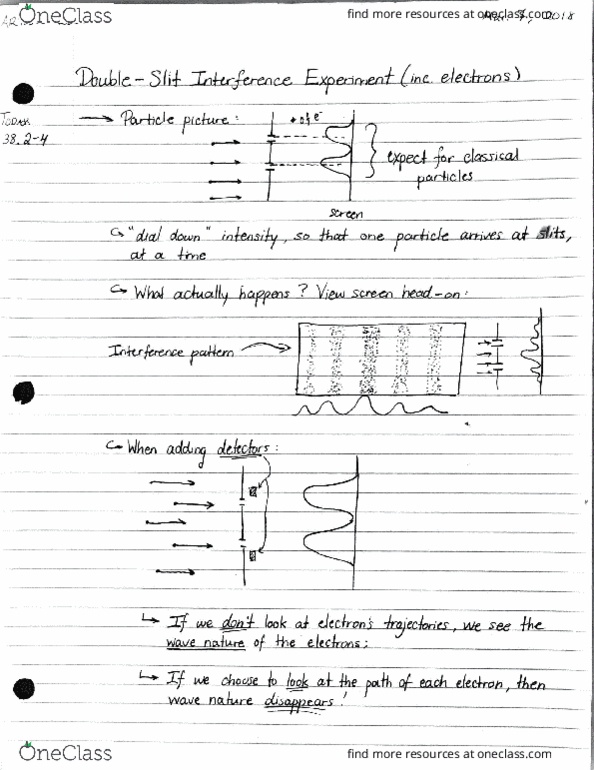 OneClass
find more resources at oneclass.com
2018
Double-Slit Interference Experiment (inc. electrons)
TODAY
38.2-4
→ Particle picture:
# of e⁻
expect for classical
particles
screen
↪ "dial down" intensity, so that one particle arrives at slits,
at a time
↪ What actually happens? View screen head-on:
Interference pattern
↪ When adding detectors:
↳ If we don't look at electron's trajectories, we see the
wave nature of the electrons;
↳ If we choose to look at the path of each electron, then
wave nature disappears!
OneClass
find more resources at oneclass.com